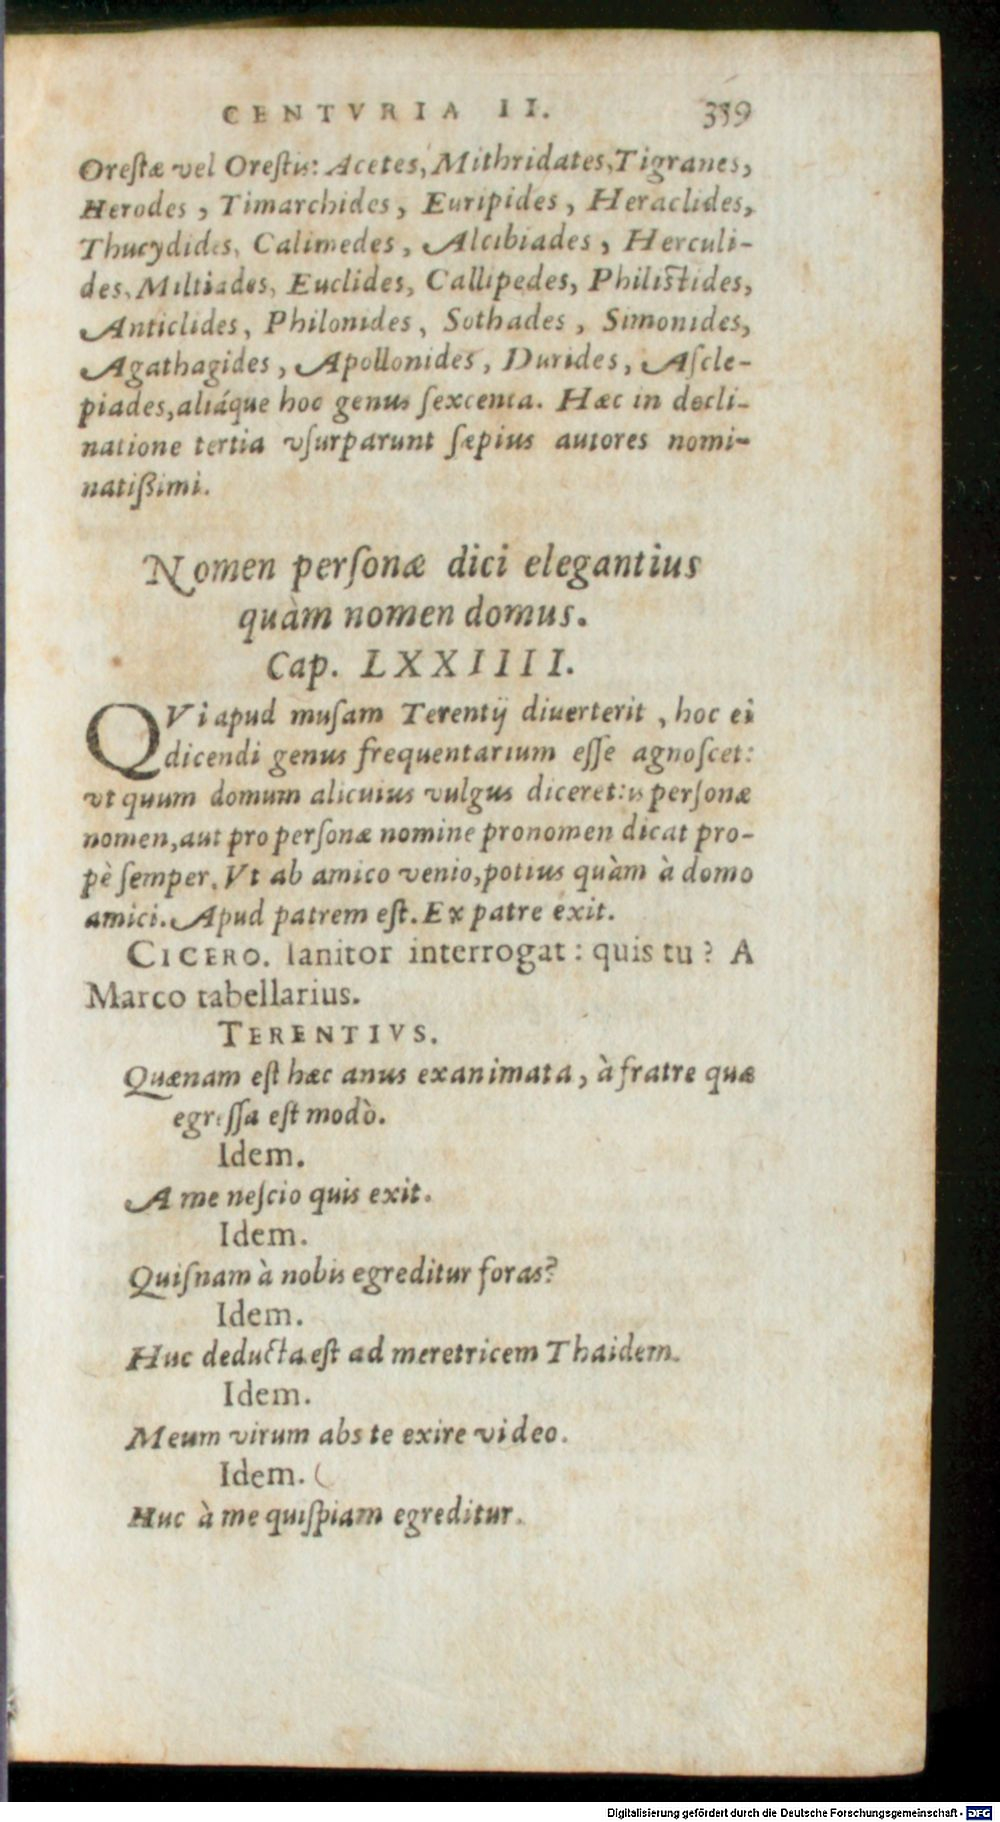 CENTVRIA II. 339
Orestæ vel Orestis: Acetes, Mithridates, Tigranes,
Herodes, Timarchides, Euripides, Heraclides,
Thucydides, Calimedes, Alcibiades, Herculi-
des, Miltiades, Euclides, Callipedes, Philistides,
Anticlides, Philonides, Sothades, Simonides,
Agathagides, Apollonides, Durides, Ascle-
piades, aliáque hoc genus sexcenta. Hæc in decli-
natione tertia vsurparunt sæpius autores nomi-
natißimi.
Nomen personæ dici elegantius
quàm nomen domus.
Cap. LXXIIII.
QVi apud musam Terentij diuerterit, hoc ei
dicendi genus frequentarium esse agnoscet:
vt quum domum alicuius vulgus diceret: is personæ
nomen, aut pro personæ nomine pronomen dicat pro-
pè semper. Vt ab amico venio, potius quàm à domo
amici. Apud patrem est. Ex patre exit.
CICERO. Ianitor interrogat: quis tu? A
Marco tabellarius.
TERENTIVS.
Quænam est hæc anus exanimata, à fratre quæ
egressa est modò.
Idem.
A me nescio quis exit.
Idem.
Quisnam à nobis egreditur foras?
Idem.
Huc deducta est ad meretricem Thaidem.
Idem.
Meum virum abs te exire video.
Idem.
Huc à me quispiam egreditur.
Digitalisierung gefördert durch die Deutsche Forschungsgemeinschaft - DFG